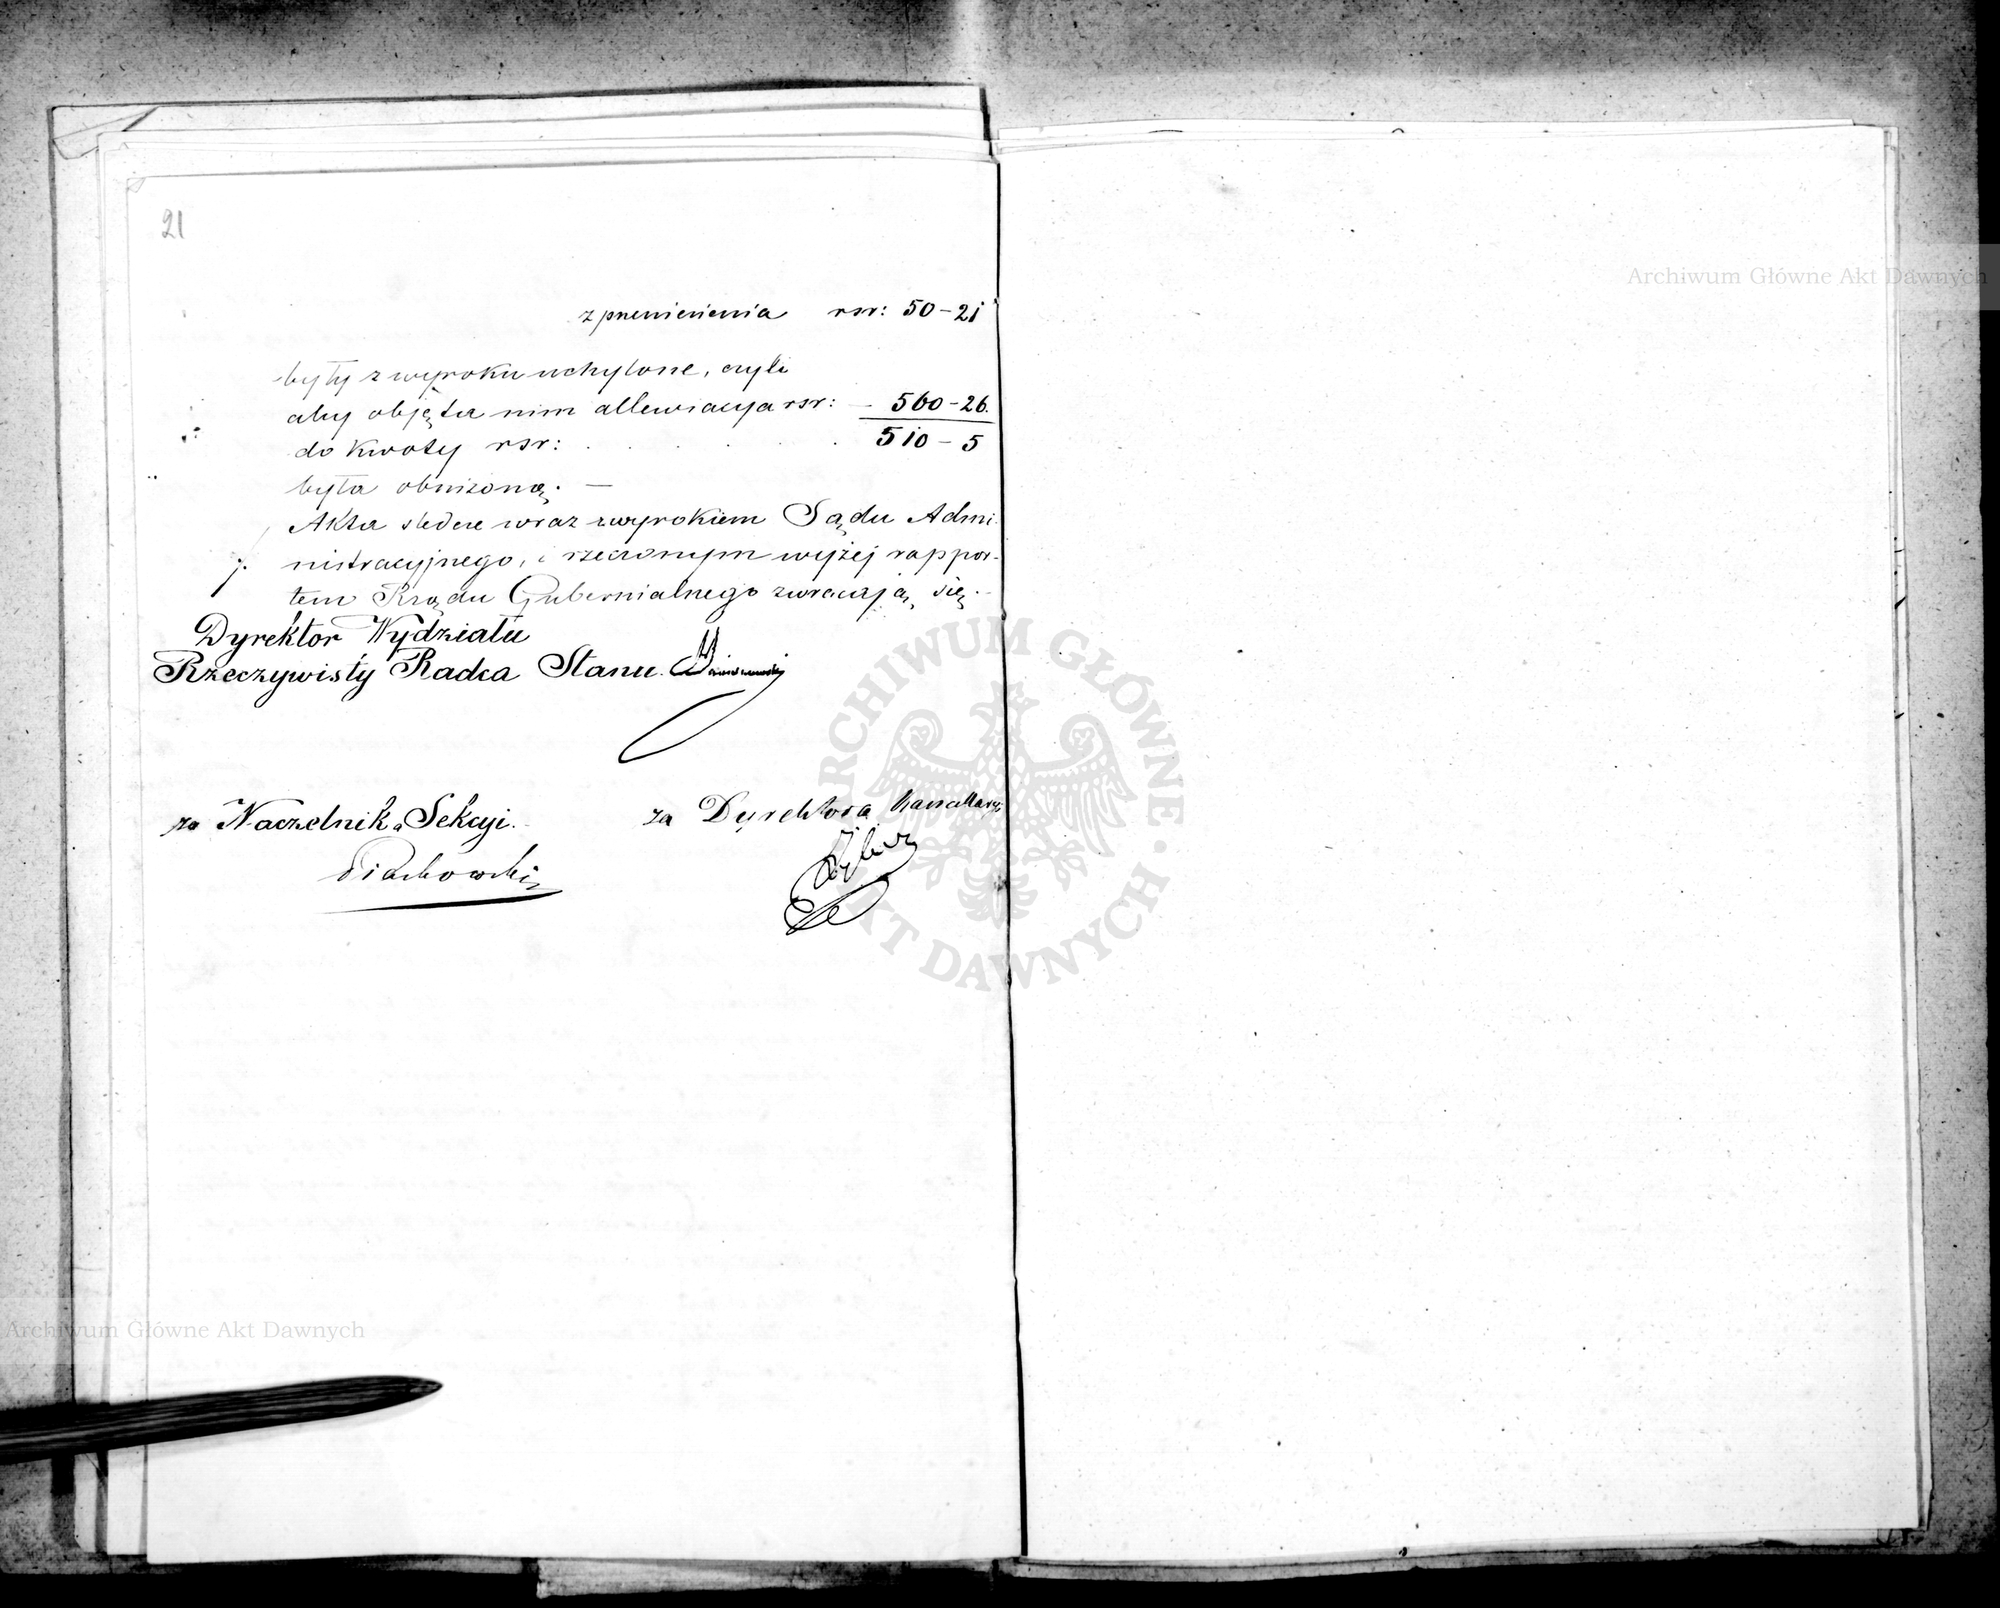 21
z przeniesienia rsr: 50-21
były z wyroku uchylone, czyli
aby objęta nim allewiacya rsr: 560-26.
do kwoty rsr: . . . . . 510-5
była obniżoną. —
Akta śledcze wraz z wyrokiem Sądu Admi-
nistracyjnego, i rzeczonym wyżej rappor-
tem Rządu Gubernialnego zwracają się. -
Dyrektor Wydziału
Rzeczywisty Radca Stanu.
za Naczelnika Sekcyi.
Piachowski
za Dyrektora Kancellaryi
Archiwum Główne Akt Dawnych
ARCHIWUM GŁÓWNE AKT DAWNYCH
Archiwum Główne Akt Dawnych